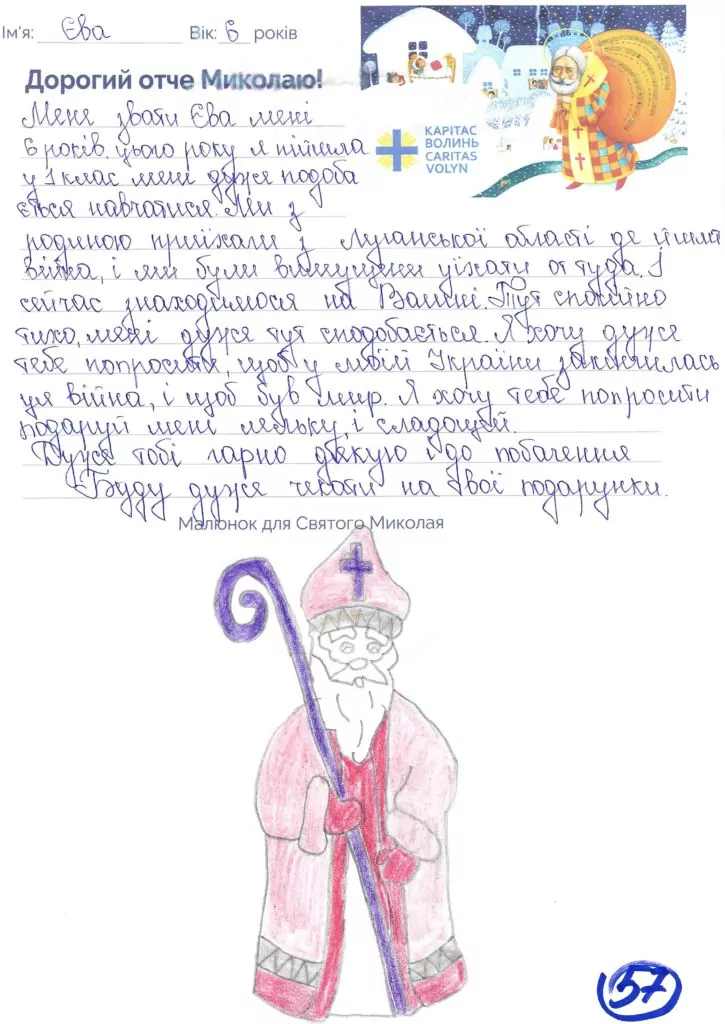 Ім'я: Єва Вік: 6 років
Дорогий отче Миколаю!
КАРІТАС
ВОЛИНЬ
CARITAS
VOLYN
Мене звати Єва мені
6 років. цього року я пішла
у 1 клас мені дуже подоба
ється навчатися. Ми з
родиною приїхали з Луганської області де йшла
війна, і ми були вимушени уїхати оттуда. І
сейчас знаходимося на Волині. Тут спокійно
тихо, мені дуже тут сподобається. Я хочу дуже
тебе попросити, щоб у моїй України закінчилась
ця війна, і щоб був мир. Я хочу тебе попросити
подаруй мені ляльку, і сладощей.
Дуже тобі гарно дякую і до побачення
Буду дуже чекати на твої подарунки.
Малюнок для Святого Миколая
57